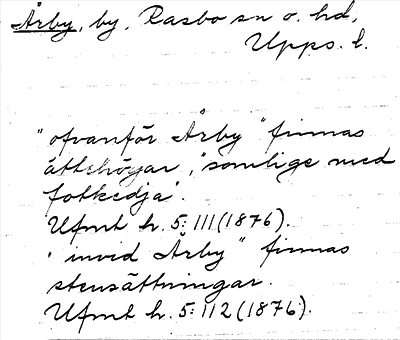 Årby, by, Rasbo sn o. hd,
Upps. l.
"ofvanför Årby" finnas
ättehögar, "somlige med
fotkedja".
Ufmt h. 5: 111 (1876).
"invid Årby" finnas
stensättningar.
Ufmt h. 5: 112 (1876).